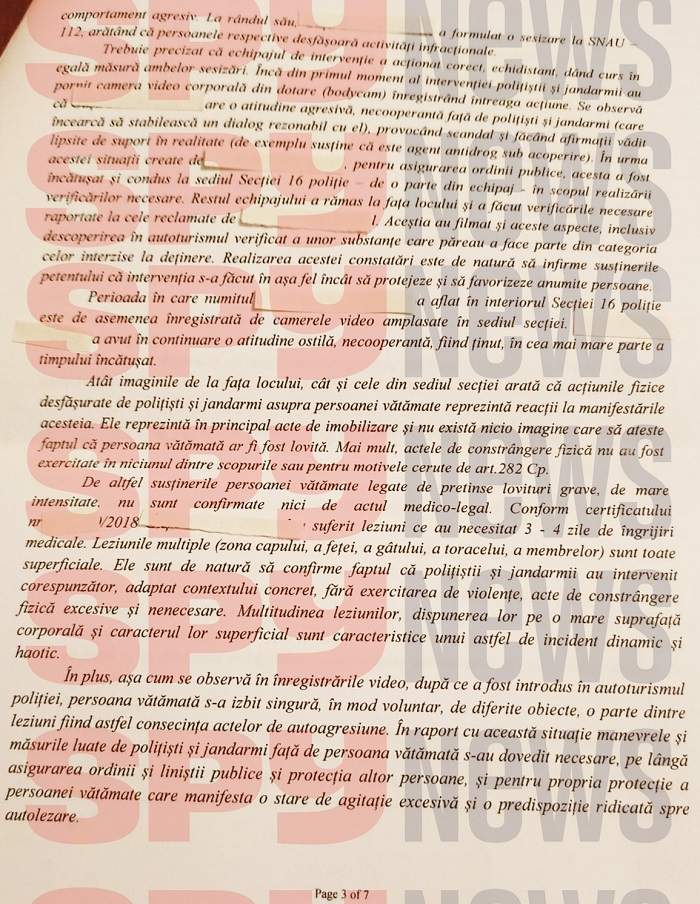 comportament agresiv. La rândul său,
a formulat o sesizare la SNAU –
112, arătând că persoanele respective desfășoară activități infracționale.
Trebuie precizat că echipajul de intervenție a acționat corect, echidistant, dând curs în
egală măsură ambelor sesizări. Încă din primul moment al intervenției polițiștii și jandarmii au
pornit camera video corporală din dotare (bodycam) înregistrând întreaga acțiune. Se observă
că are o atitudine agresivă, necooperantă față de polițiști și jandarmi (care
încearcă să stabilească un dialog rezonabil cu el), provocând scandal și făcând afirmații vădit
lipsite de suport în realitate (de exemplu susține că este agent antidrog sub acoperire). În urma
acestei situații create de , pentru asigurarea ordinii publice, acesta a fost
încătușat și condus la sediul Secției 16 poliție – de o parte din echipaj - în scopul realizării
verificărilor necesare. Restul echipajului a rămas la fața locului și a făcut verificările necesare
raportate la cele reclamate de l. Aceștia au filmat și aceste aspecte, inclusiv
descoperirea în autoturismul verificat a unor substanțe care păreau a face parte din categoria
celor interzise la deținere. Realizarea acestei constatări este de natură să infirme susținerile
petentului că intervenția s-a făcut în așa fel încât să protejeze și să favorizeze anumite persoane.
Perioada în care numitul a aflat în interiorul Secției 16 poliție
este de asemenea înregistrată de camerele video amplasate în sediul secției.
a avut în continuare o atitudine ostilă, necooperantă, fiind ținut, în cea mai mare parte a
timpului încătușat.
Atât imaginile de la fața locului, cât și cele din sediul secției arată că acțiunile fizice
desfășurate de polițiști și jandarmi asupra persoanei vătămate reprezintă reacții la manifestările
acesteia. Ele reprezintă în principal acte de imobilizare și nu există nicio imagine care să ateste
faptul că persoana vătămată ar fi fost lovită. Mai mult, actele de constrângere fizică nu au fost
exercitate în niciunul dintre scopurile sau pentru motivele cerute de art.282 Cp.
De altfel susținerile persoanei vătămate legate de pretinse lovituri grave, de mare
intensitate, nu sunt confirmate nici de actul medico-legal. Conform certificatului
nr /2018 suferit leziuni ce au necesitat 3 - 4 zile de îngrijiri
medicale. Leziunile multiple (zona capului, a feței, a gâtului, a toracelui, a membrelor) sunt toate
superficiale. Ele sunt de natură să confirme faptul că polițiștii și jandarmii au intervenit
corespunzător, adaptat contextului concret, fără exercitarea de violențe, acte de constrângere
fizică excesive și nenecesare. Multitudinea leziunilor, dispunerea lor pe o mare suprafață
corporală și caracterul lor superficial sunt caracteristice unui astfel de incident dinamic și
haotic.
În plus, așa cum se observă în înregistrările video, după ce a fost introdus în autoturismul
poliției, persoana vătămată s-a izbit singură, în mod voluntar, de diferite obiecte, o parte dintre
leziuni fiind astfel consecința actelor de autoagresiune. În raport cu această situație manevrele și
măsurile luate de polițiști și jandarmi față de persoana vătămată s-au dovedit necesare, pe lângă
asigurarea ordinii și liniștii publice și protecția altor persoane, și pentru propria protecție a
persoanei vătămate care manifesta o stare de agitație excesivă și o predispoziție ridicată spre
autolezare.
Page 3 of 7
SPY NEWS